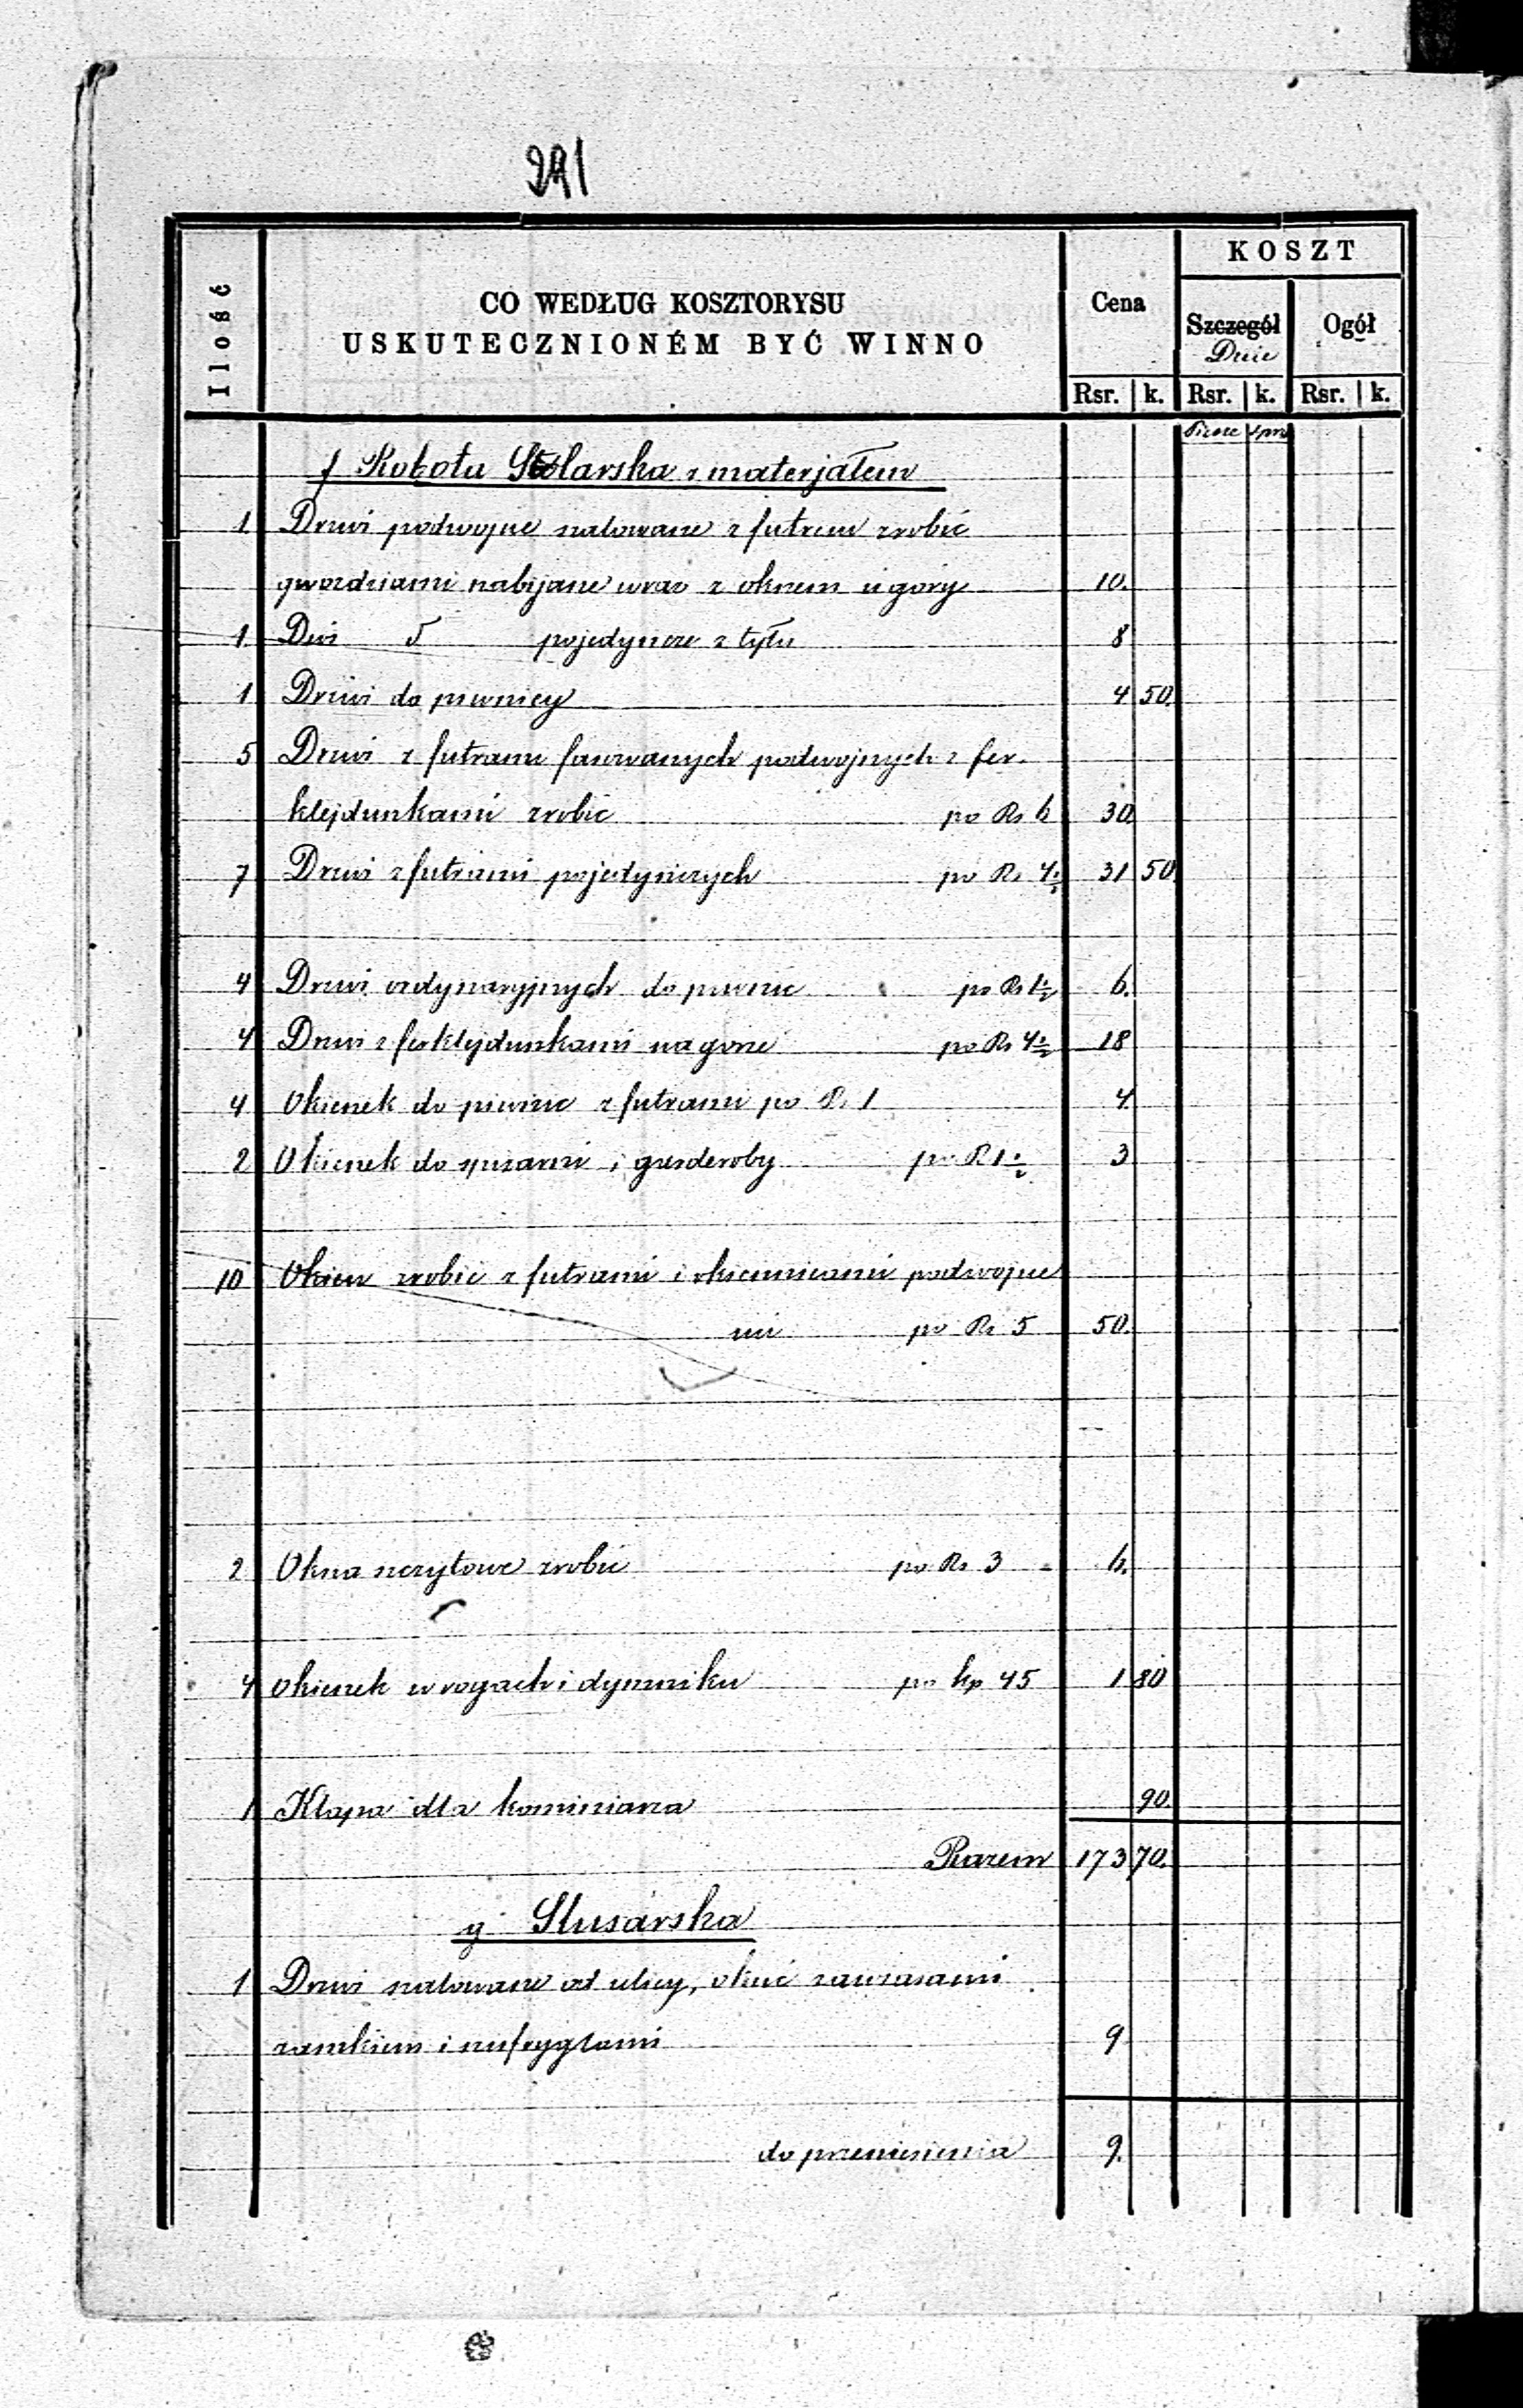 291
Ilość
CO WEDŁUG KOSZTORYSU
USKUTECZNIONÉM BYĆ WINNO
Cena
KOSZT
Szczegół
Dnie
Ogół
Rsr. k. Rsr. k. Rsr. k.
f Robota Stolarska z materjałem
1 Drzwi podwojne szalowane z futrem zrobić
gwozdziami nabijane wraz z oknem u gory 10.
1 Dwi pojedyncze z tyłu 8
1 Drzwi do piwnicy 4 50.
5 Drzwi z futrami fasowanych podwojnych z fer.
klejdunkami zrobic po Rs 6 30
7 Drzwi z futrami pojedynczych po Rs 4½ 31 50.
4 Drzwi ordynaryjnych do piwnic po Rs 1½ 6.
4 Drzwi z ferklejdunkami na gorze po Rs 4½ 18
4 Okienek do piwnic z futrami po Rs 1 4.
2 Okienek do spizarni i garderoby po R 1½ 3
10 Okien zrobic z futrami i okiennicami podwojne
mi po Rs 5 50.
2 Okna szczytowe zrobic po Rs 3 6.
4 okienek w rogach i dymniku po kp 45 1 80
1 Klapa dla kominiarza 90.
Razem 173 70.
g Slusarska
1 Drzwi szalowane od ulicy, okuc zawiasami
zamkiem i 9
do przeniesienia 9.